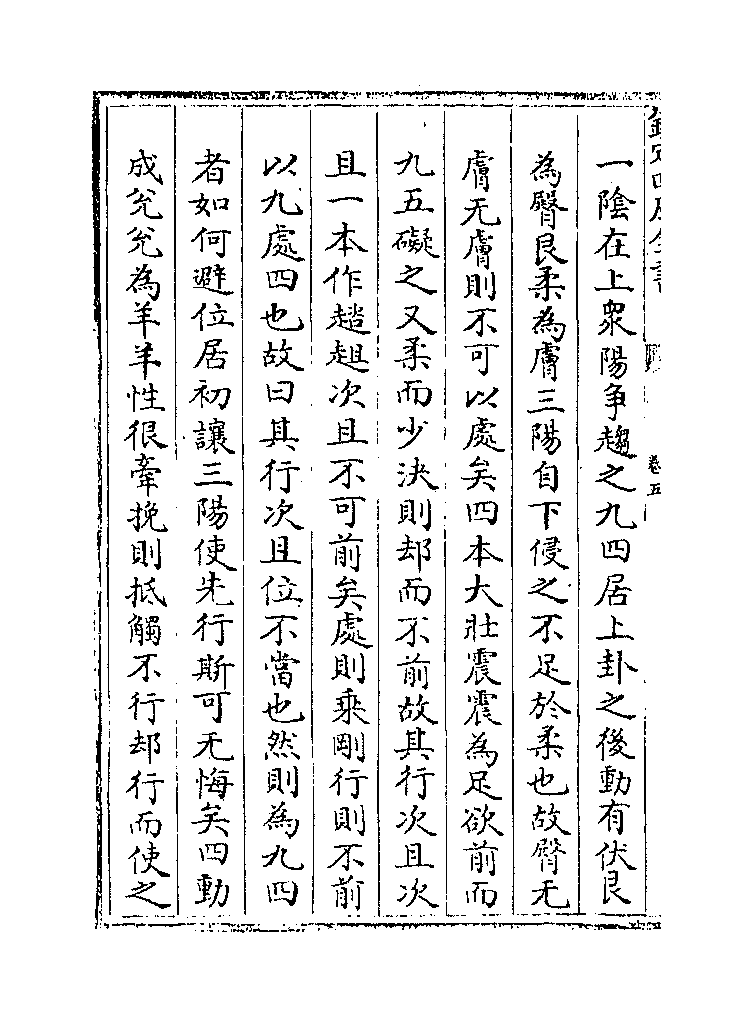 一陰在上衆陽争趨之九四居上卦之後動有伏艮
為臀艮柔為膚三陽自下侵之不足於柔也故臀无
膚无膚則不可以處矣四本大壯震震為足欲前而
九五礙之又柔而少決則却而不前故其行次且次
且一本作趑趄次且不可前矣處則乘剛行則不前
以九處四也故曰其行次且位不當也然則為九四
者如何避位居初讓三陽使先行斯可无悔矣四動
成兊兊為羊羊性很牽挽則抵觸不行却行而使之
卷五